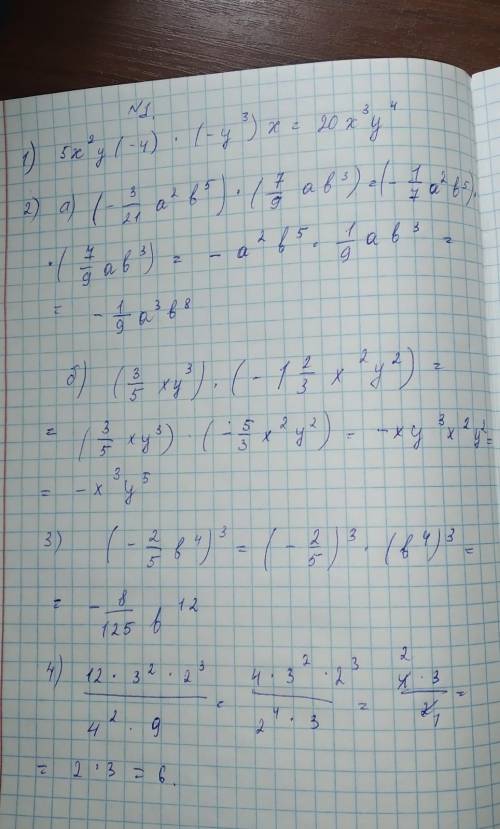 №1.
1) 5x²y(-4) · (-y³)x = 20x³y⁴
2) a) (-3/21 a²b⁵) · (7/9 ab³) = (-1/7 a²b⁵) ·
· (7/9 ab³) = -a²b⁵ · 1/9 ab³ =
= -1/9 a³b⁸
б) (3/5 xy³) · (-1 2/3 x²y²) =
= (3/5 xy³) · (-5/3 x²y²) = -xy³x²y² =
= -x³y⁵
3) (-2/5 b⁴)³ = (-2/5)³ · (b⁴)³ =
= -8/125 b¹²
4) (12 · 3² · 2³)/(4² · 9) = (4 · 3² · 2³)/(2⁴ · 3) = (4 · 3)/2 =
= 2 · 3 = 6.